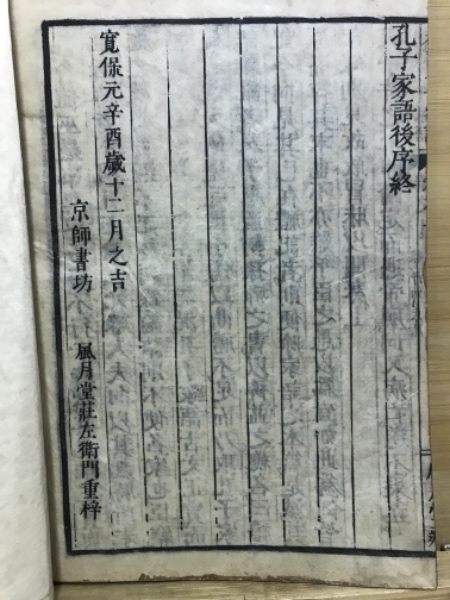 孔子家語後序終
寛保元辛酉歳十二月之吉
京師書坊 風月堂莊左衛門重梓